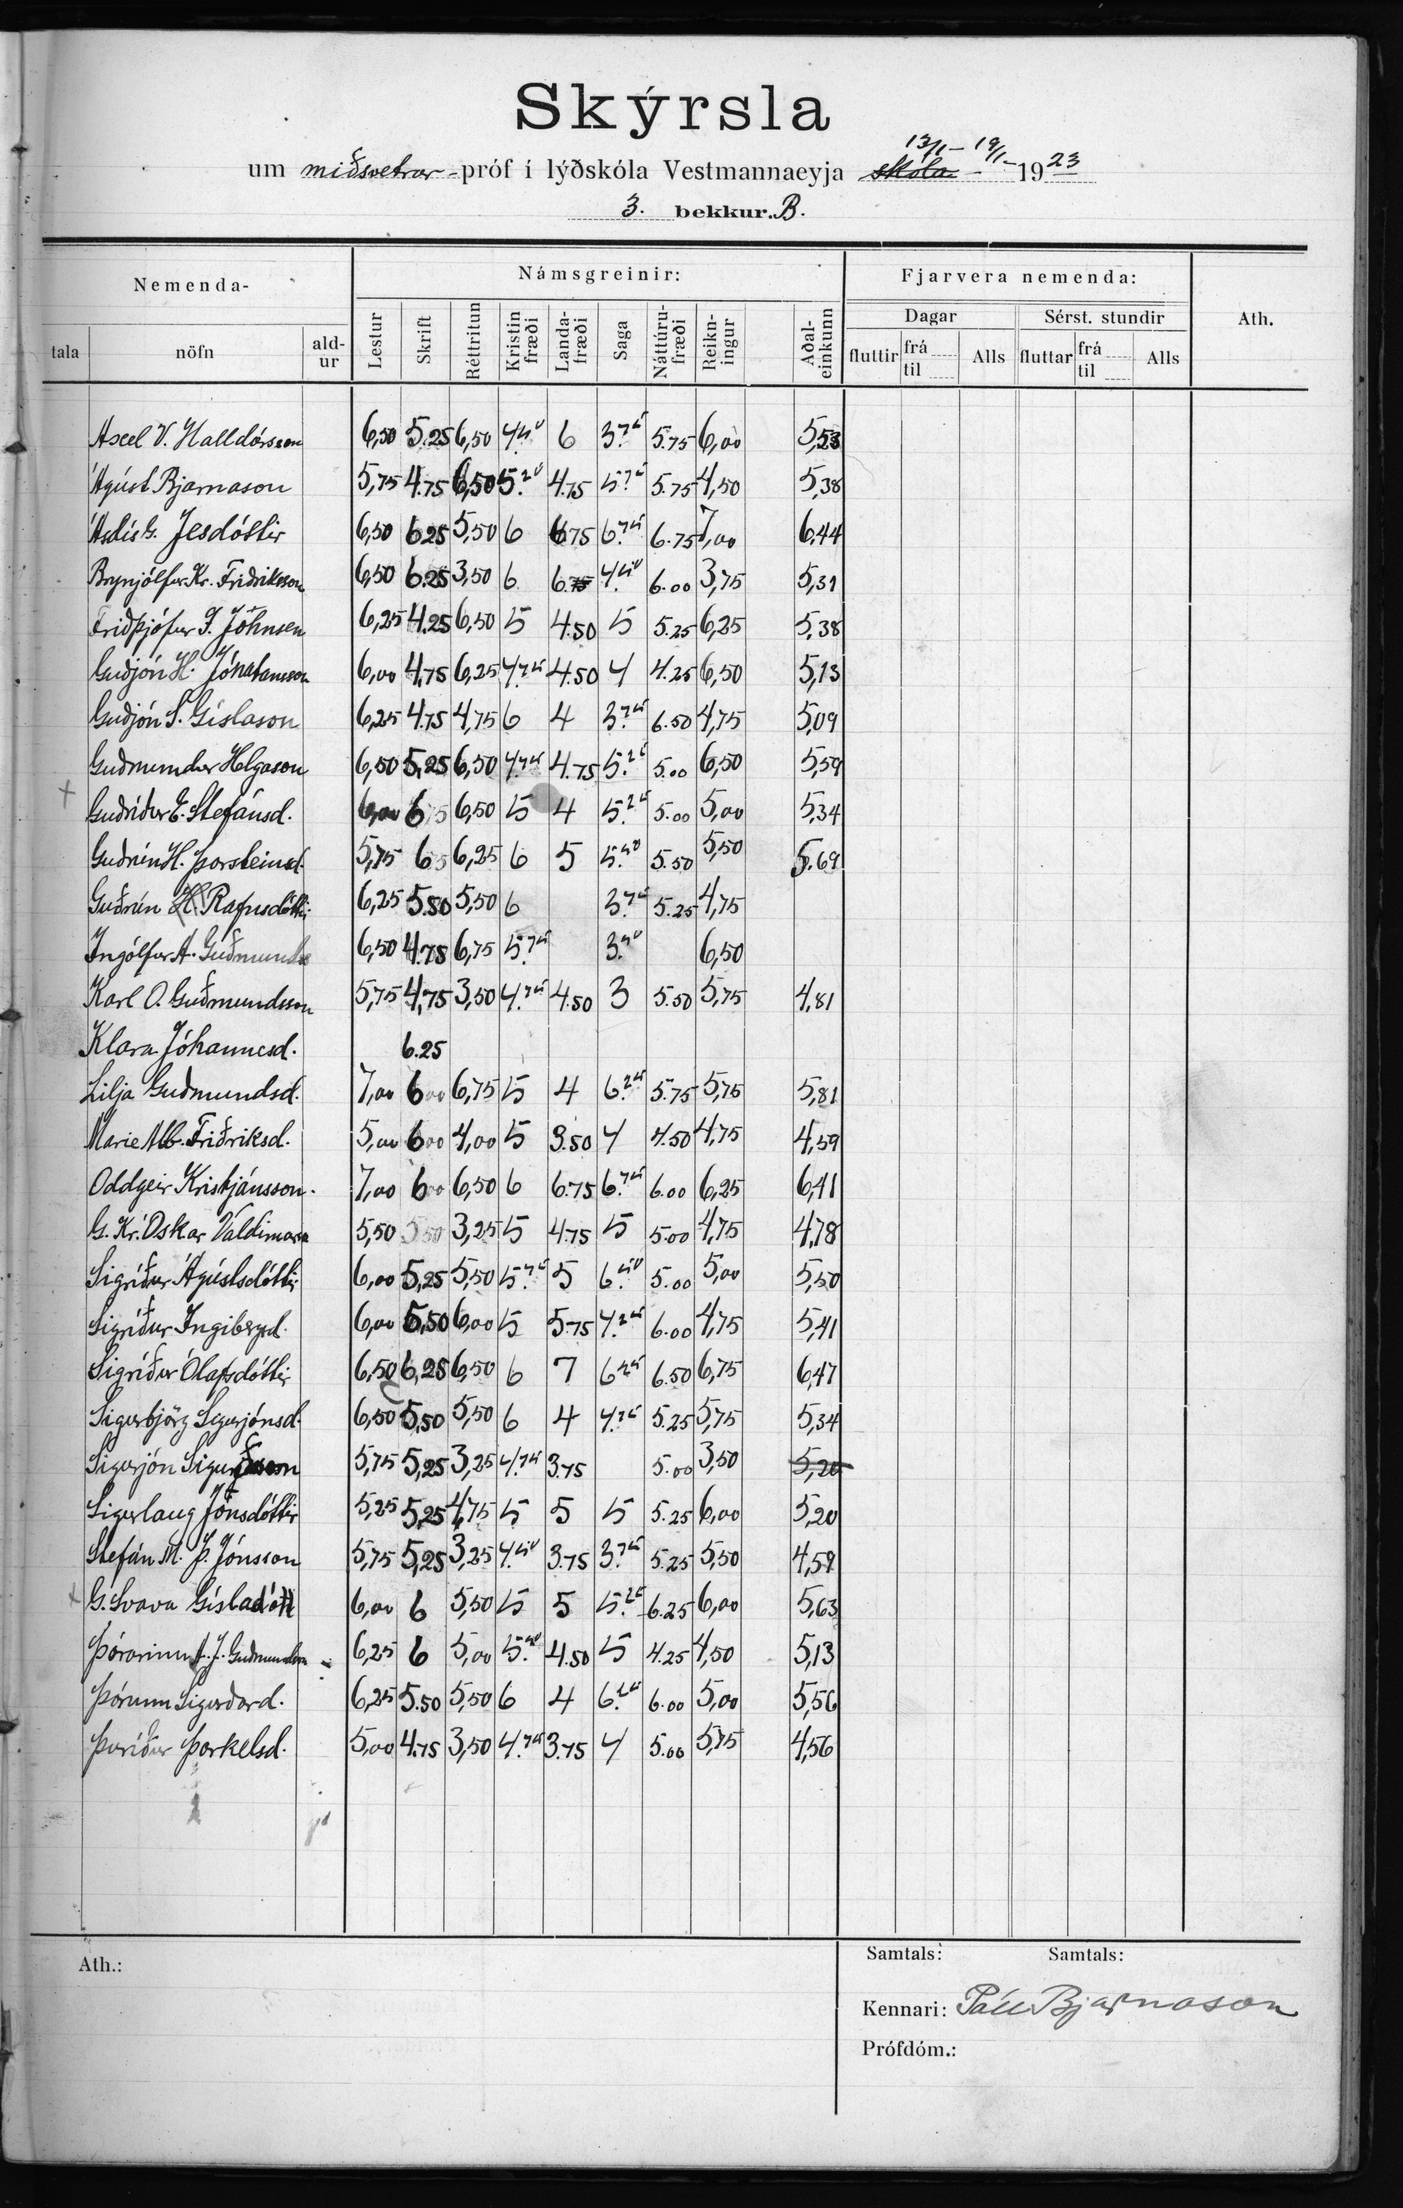 Skýrsla
um miðsvetrar-próf í lýðskóla Vestmannaeyja skóla 13/1 – 19/1 – 1923
3. bekkur. B.
Nemenda- Námsgreinir: Fjarvera nemenda: Ath.
Dagar Sérst. stundir
tala nöfn aldur Lestur Skrift Réttritun Kristinfræði Landafræði Saga Náttúrufræði Reikningur Aðaleinkunn fluttir frá til Alls fluttar frá til Alls
Axel V. Halldórsson 6,50 5.25 6,50 4.50 6 3.75 5.75 6,00 5,53
Ágúst Bjarnason 5,75 4.75 6,50 5. 4.75 5.75 5.75 4,50 5,38
Ásdís G. Jesdóttir 6,50 6.25 5,50 6 6.75 6.75 6.75 7,00 6,44
Brynjólfur Kr. Friðriksson 6,50 6.25 3,50 6 6. 4.50 6.00 3,75 5,31
Friðþjófur G. Johnsen 6,25 4.25 6,50 5 4.50 5 5.25 6,25 5,38
Guðjón H. Jónatansson 6,00 4,75 6,25 4.75 4.50 4 4.25 6,50 5,13
Guðjón S. Gíslason 6,25 4.75 4,75 6 4 3.75 6.50 4,75 5,09
Guðmundur Helgason 6,50 5,25 6,50 4.75 4.75 5.25 5.00 6,50 5,59
+ Guðríður E. Stefánsd. 6,00 6 6,50 5 4 5.25 5.00 5,00 5,34
Guðrún H. Þorsteinsd. 5,75 6 6,25 6 5 5.50 5.50 5,50 5.69
Guðrún H. Rafnsdóttir 6,25 5.50 5,50 6 3.75 5.25 4,75
Ingólfur A. Guðmunds 6,50 4.75 6,75 5.75 3.50 6,50
Karl O. Guðmundsson 5,75 4,75 3,50 4.75 4.50 3 5.50 5,75 4,81
Klara Jóhannesd. 6.25
Lilja Guðmundsd. 7,00 6 00 6,75 5 4 6.25 5.75 5,75 5,81
Marie Alb. Friðriksd. 5,00 6 00 4,00 5 3.50 4 4.50 4,75 4,59
Oddgeir Kristjánsson. 7,00 6 00 6,50 6 6.75 6.75 6.00 6,25 6,41
G. Kr. Óskar Valdimars 5,50 5 50 3,25 5 4.75 5 5.00 4,75 4,78
Sigríður Ágústsdóttir 6,00 5,25 5,50 5.75 5 6.50 5.00 5,00 5,50
Sigríður Ingibergsd. 6,00 5,50 6,00 5 5.75 4.25 6.00 4,75 5,41
Sigríður Ólafsdóttir 6,50 6,25 6,50 6 7 6.25 6.50 6,75 6,47
Sigurbjörg Sigurjónsd. 6,50 5,50 5,50 6 4 4.25 5.25 5,75 5,34
Sigurjón Sigurðsson 5,75 5,25 3,25 4.75 3.75 5.00 3,50 5,20
Sigurlaug Jónsdóttir 5,25 5,25 4,75 5 5 5 5.25 6,00 5,20
Stefán M. Þ. Jónsson 5,75 5,25 3,25 4.50 3.75 3.75 5.25 5,50 4,59
+ G. Svava Gísladótt 6,00 6 5,50 5 5 5.25 6.25 6,00 5,63
Þórarinn A. J. Guðmundsson 6,25 6 5,00 5.50 4.50 5 4.25 4,50 5,13
Þórunn Sigurðard. 6,25 5.50 5,50 6 4 6.25 6.00 5,00 5,56
Þuríður Þorkelsd. 5,00 4.75 3,50 4.75 3.75 4 5.00 5,75 4,56
Ath.: Samtals: Samtals:
Kennari: Páll Bjarnason
Prófdóm.: